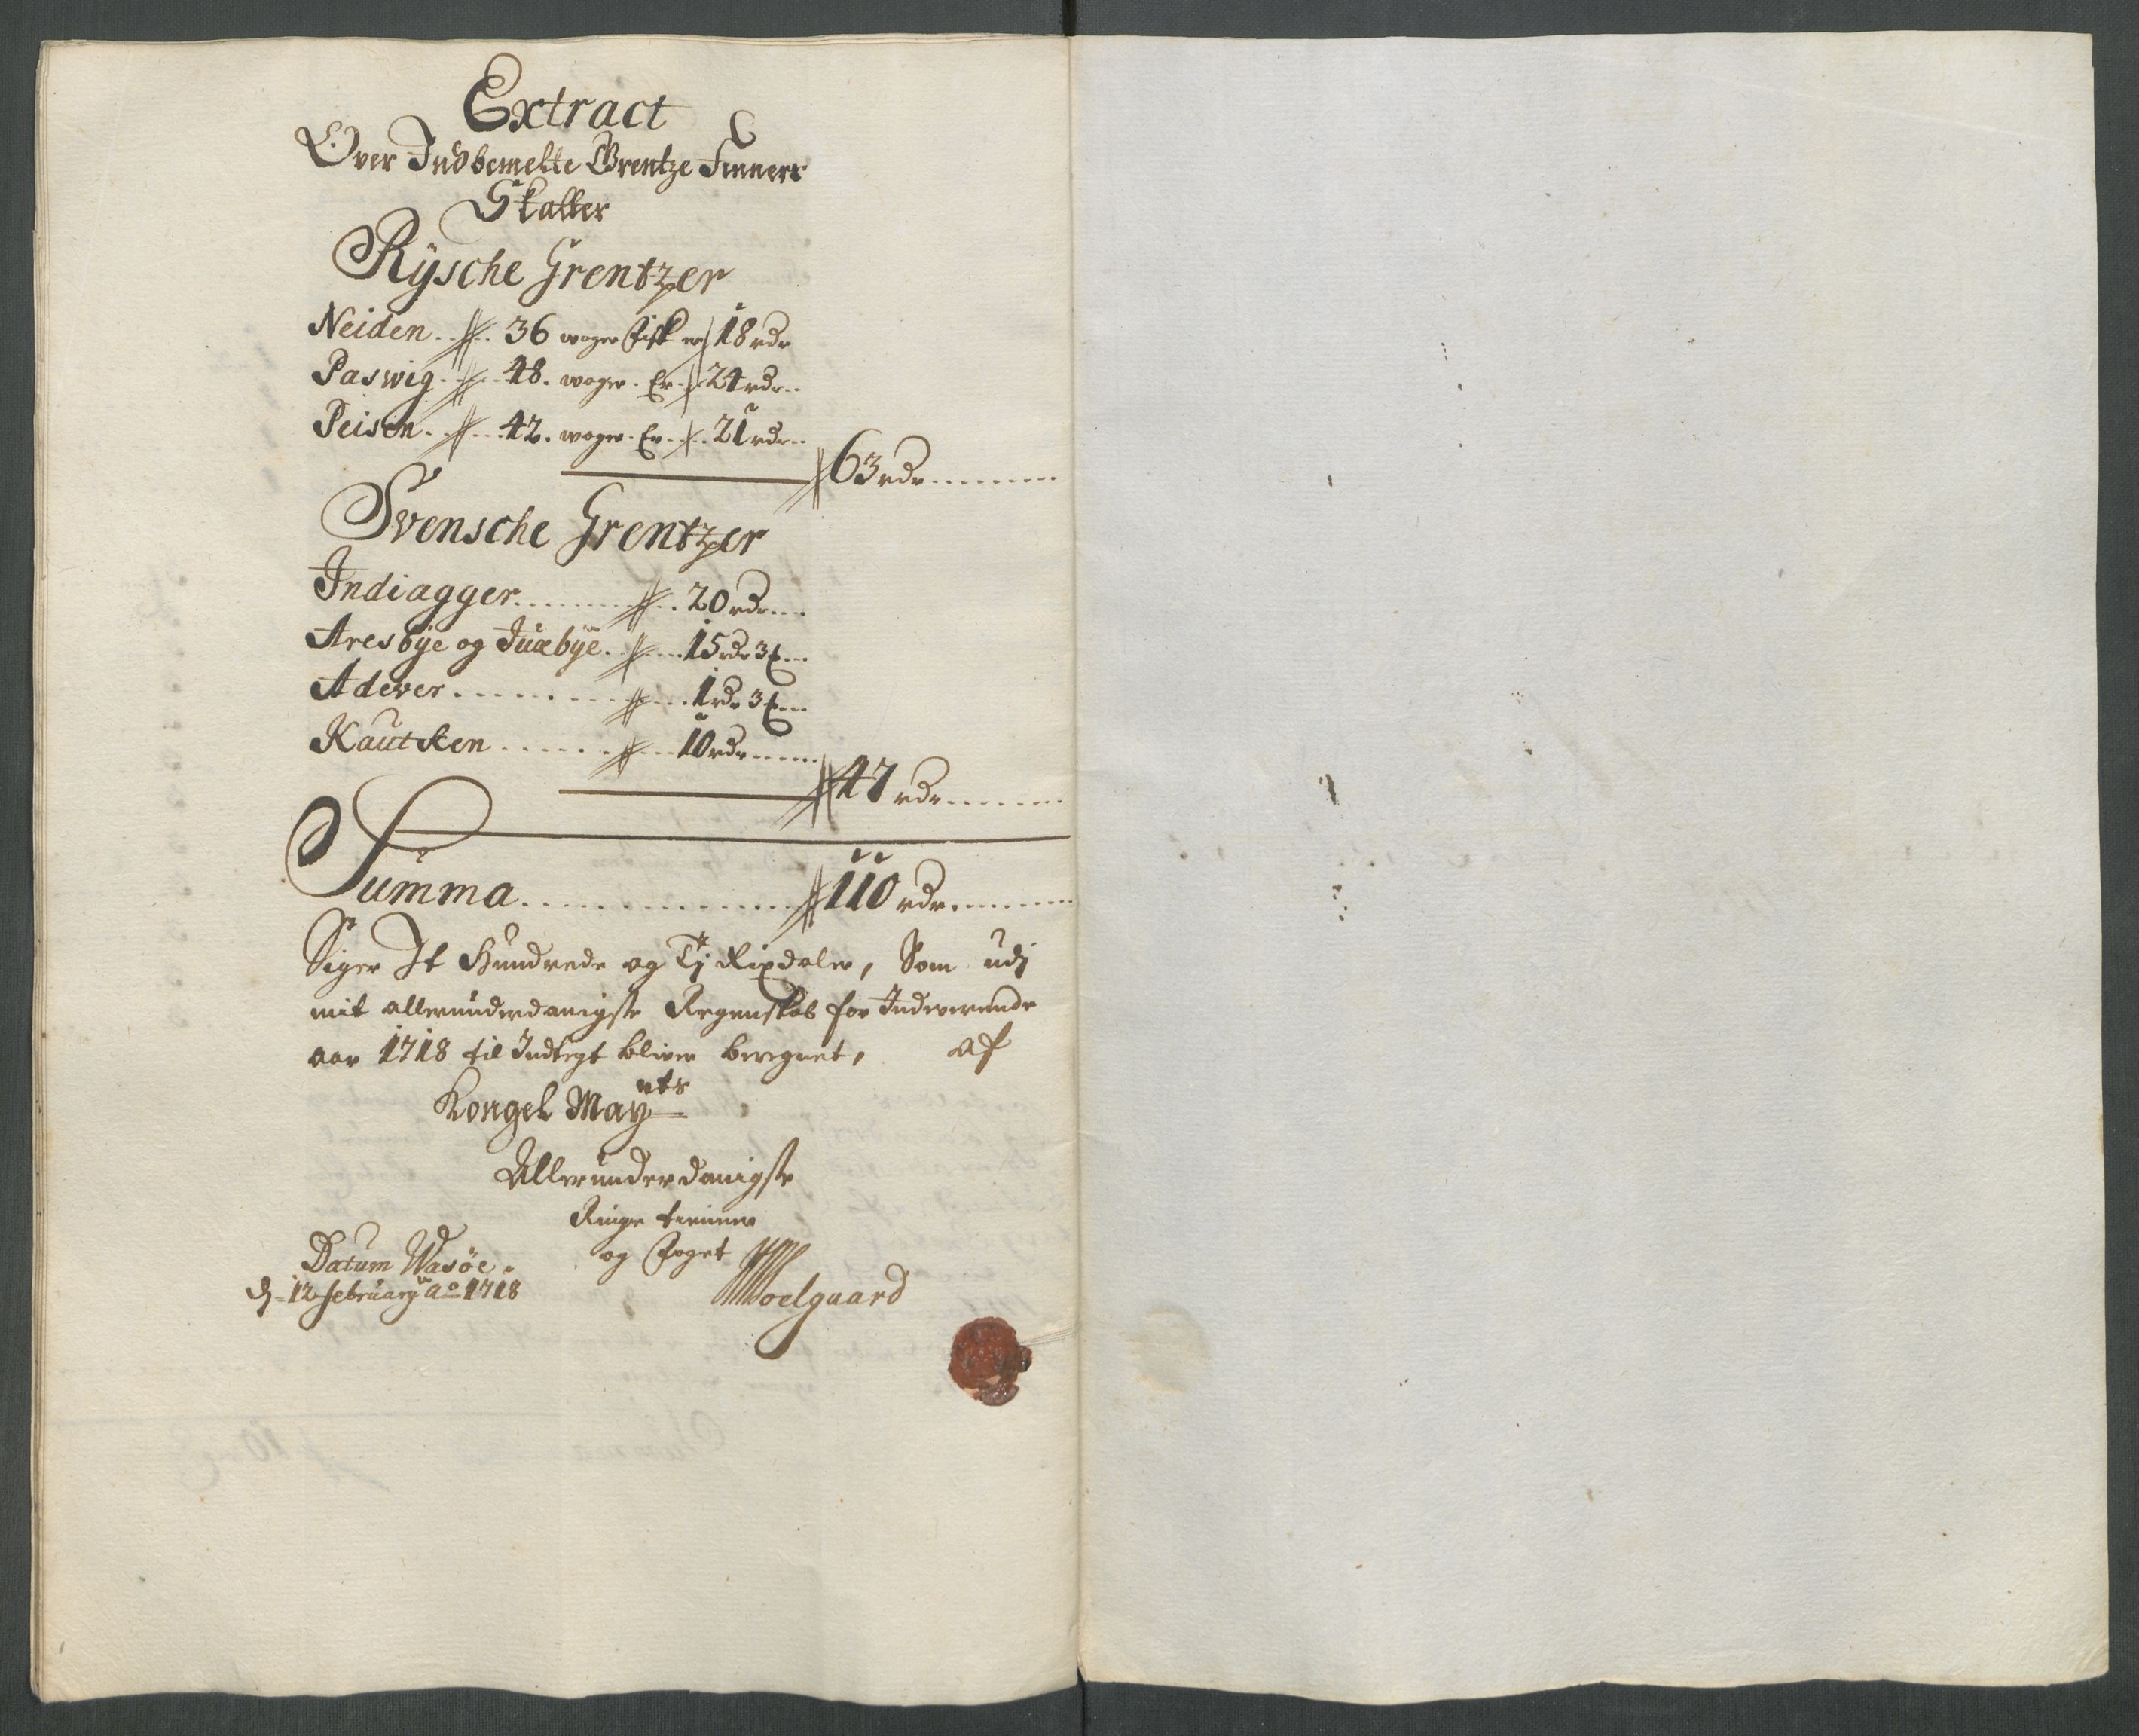 Extract
Over Indbemelte Grentze Finners
Skatter
Rÿsche Grentzer
Neiden 36 woger Fisk er 18 rdr
Paswig 48. woger. Er 24 rdr
Peisen 42. woger. Er 21 rdr
63 rdr
Svensche Grentzer
Indiagger 20 rdr
Aresbÿe og Juxbÿe 15 rdr 3 ℔
Adever 1 rdr 3 ℔
Kautken 10 rdr
47 rdr
Summa 110 rdr
Siger It Hundrede og Tj Rixdaler, Som udj
mit allerunderdanigste Regenskab for Indeverende
aar 1718 til Indtegt bliver beregnet, af
Kongel Mayts
Allerunderdanigste
Ringe tienner
og Foget
Datum Wasöe.
d. 12 februarÿ Ao 1718
Soelgaard